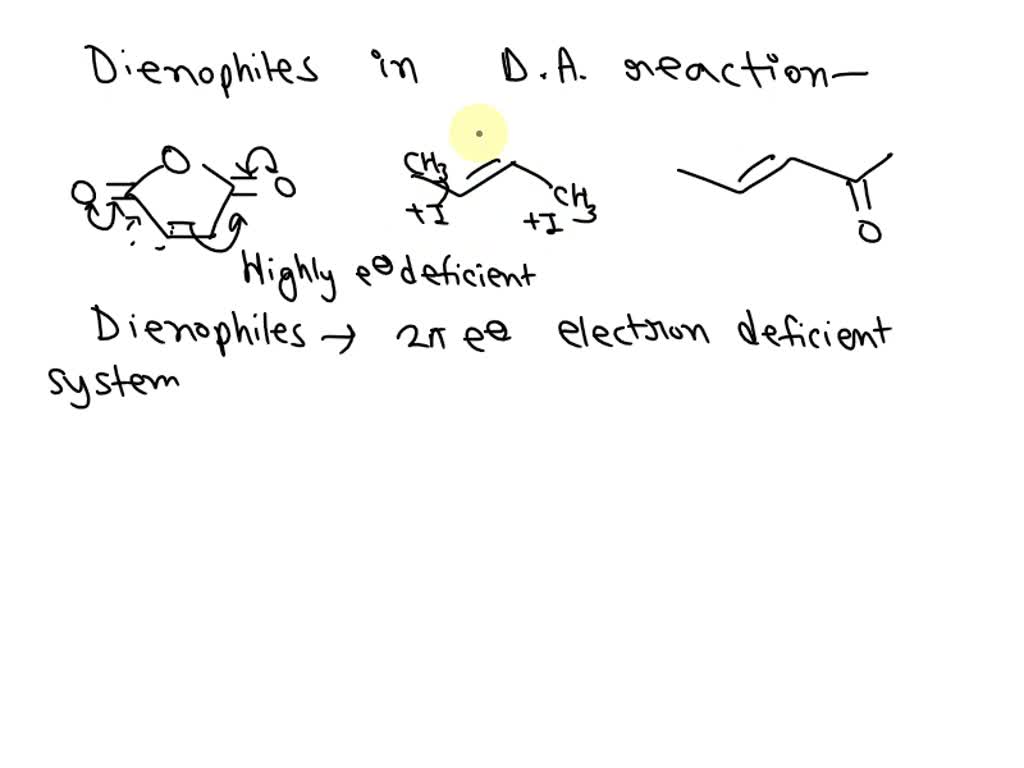 Dienophiles in D.A. reaction—
O O CH3 +I CH3 +I O
Highly e⊖ deficient
Dienophiles → 2π e⊖ electron deficient
system